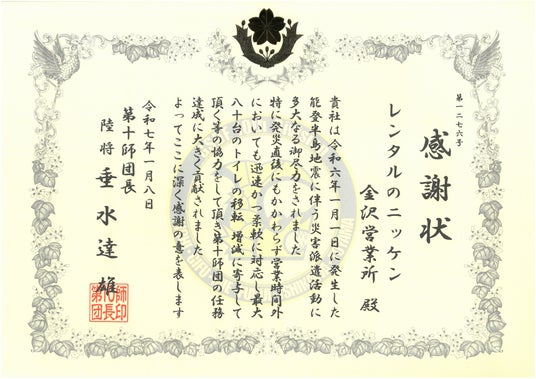 第一二七六号
感謝状
レンタルのニッケン
金沢営業所 殿
貴社は令和六年一月一日に発生した
能登半島地震に伴う災害派遣活動に
多大なる御尽力をされました
特に発災直後にもかかわらず営業時間外
においても迅速かつ柔軟に対応し最大
八十台のトイレの移転 増減に寄与して
頂く等の協力をして頂き第十師団の任務
達成に大きく貢献されました
よってここに深く感謝の意を表します
令和七年一月八日
第十師団長
陸将 垂水達雄